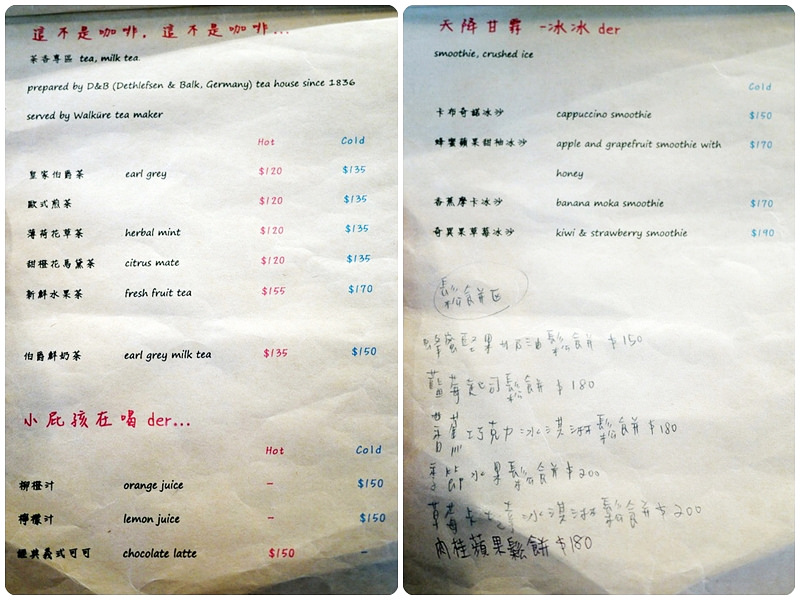 這不是咖啡, 這不是咖啡...
茶香專區 tea, milk tea.
prepared by D&B (Dethlefsen & Balk, Germany) tea house since 1836
served by Walküre tea maker
Hot Cold
皇家伯爵茶 earl grey $120 $135
歐式煎茶 $120 $135
薄荷花草茶 herbal mint $120 $135
甜橙花馬黛茶 citrus mate $120 $135
新鮮水果茶 fresh fruit tea $155 $170
伯爵鮮奶茶 earl grey milk tea $135 $150
小屁孩在喝 der...
Hot Cold
柳橙汁 orange juice - $150
檸檬汁 lemon juice - $150
經典義式可可 chocolate latte $150 -
天降甘霖 -冰冰 der
smoothie, crushed ice
Cold
卡布奇諾冰沙 cappuccino smoothie $150
蜂蜜蘋果甜柚冰沙 apple and grapefruit smoothie with $170
honey
香蕉摩卡冰沙 banana moka smoothie $170
奇異果草莓冰沙 kiwi & strawberry smoothie $190
鬆餅区
蜂蜜堅果奶油鬆餅 $150
藍莓起司鬆餅 $180
香蕉巧克力冰淇淋鬆餅 $180
季節水果鬆餅 $200
草莓卡士達冰淇淋鬆餅 $200
肉桂蘋果鬆餅 $180